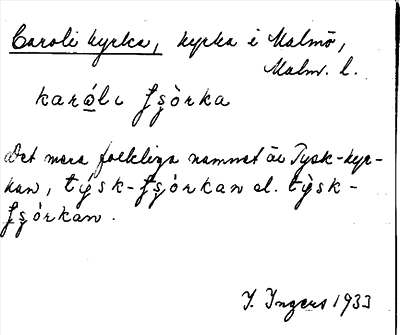 Caroli kyrka, kyrka i Malmö,
Malm. l.
karó̱lı fşòrka
Det mera folkliga namnet är Tysk-kyr-
kan, týsk-fşórkan el. tỳsk-
fşórkan.
I. Ingers 1933